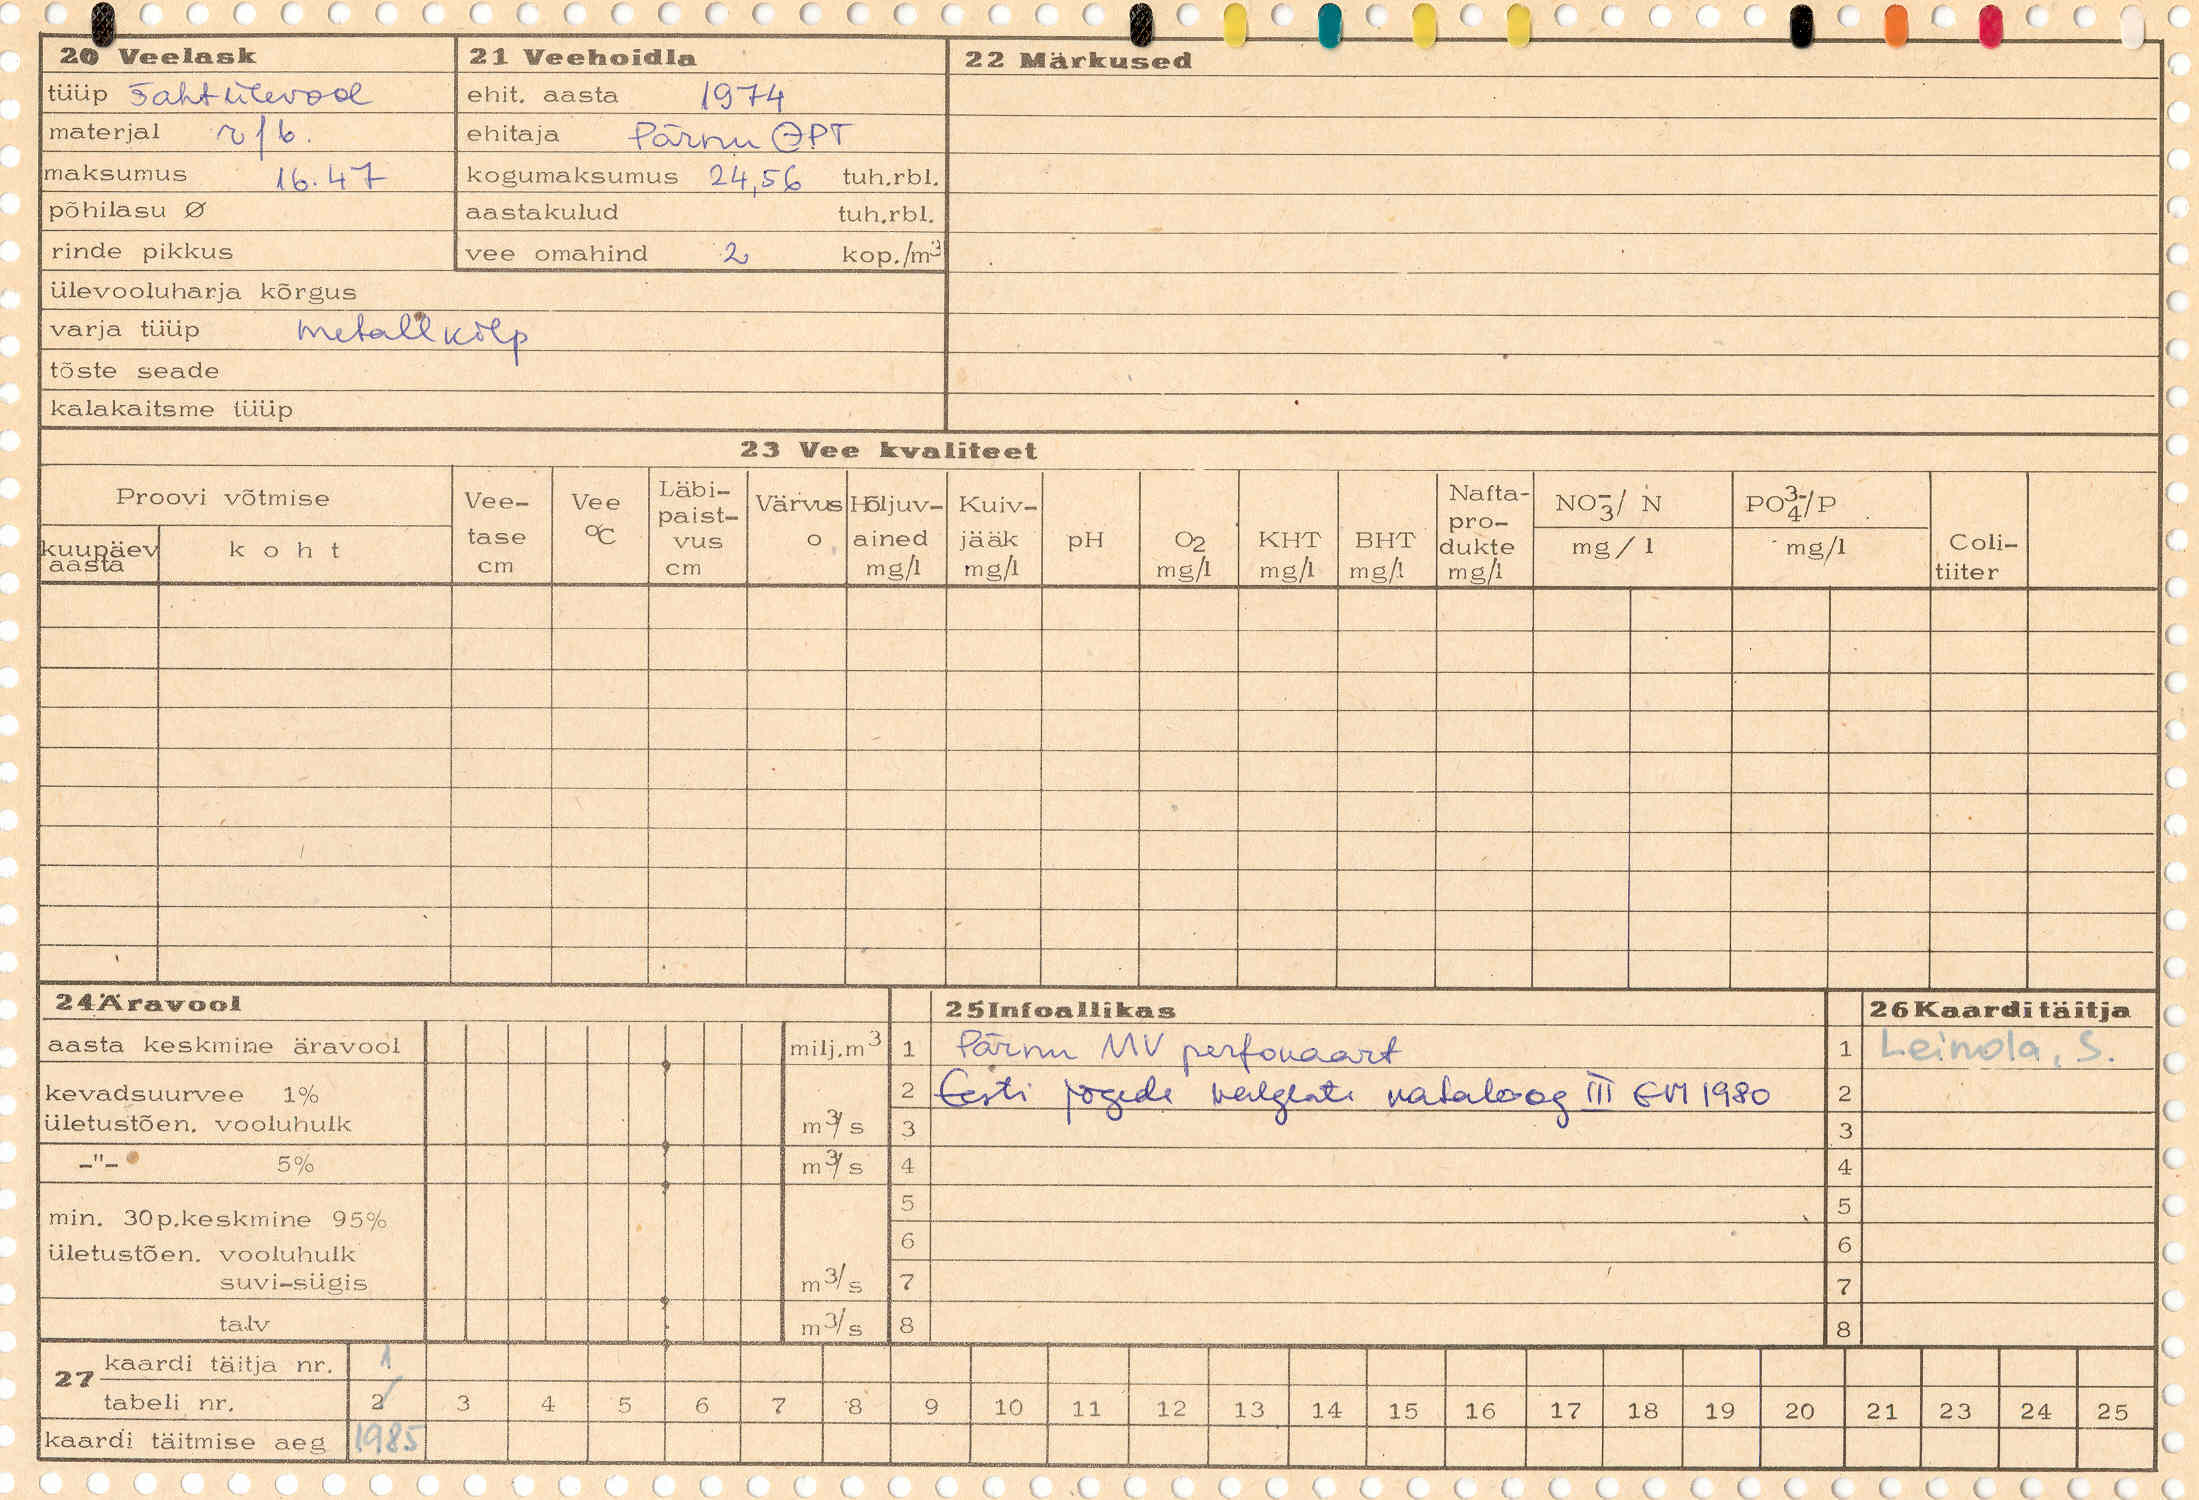 20 Veelask
tüüp Šahtülevool
materjal r/b.
maksumus 16.47
põhilasu Ø
rinde pikkus
ülevooluharja kõrgus
varja tüüp metallkilp
tõste seade
kalakaitsme tüüp
21 Veehoidla
ehit. aasta 1974
ehitaja Pärnu EPT
kogumaksumus 24,56 tuh.rbl.
aastakulud tuh.rbl.
vee omahind 2 kop./m³
22 Märkused
23 Vee kvaliteet
Proovi võtmise
kuupäev aasta
koht
Vee-tase cm
Vee °C
Läbi-paist-vus cm
Värvus o
Hõljuv-ained mg/l
Kuiv-jääk mg/l
pH
O2 mg/l
KHT mg/l
BHT mg/l
Nafta-pro-dukte mg/l
NO3-/ N mg/l
PO4 3-/P mg/l
Coli-tiiter
24 Äravool
aasta keskmine äravool milj.m³
kevadsuurvee 1%
ületustõen. vooluhulk m³/s
-"- 5% m³/s
min. 30p.keskmine 95%
ületustõen. vooluhulk
suvi-sügis m³/s
talv m³/s
25 Infoallikas
1 Pärnu MV perfokaart
2 Eesti jõgede valglate kataloog III EM 1980
3
4
5
6
7
8
26 Kaarditäitja
1 Leinola, S.
2
3
4
5
6
7
8
27 kaardi täitja nr. 1
tabeli nr. 2 3 4 5 6 7 8 9 10 11 12 13 14 15 16 17 18 19 20 21 23 24 25
kaardi täitmise aeg 1985